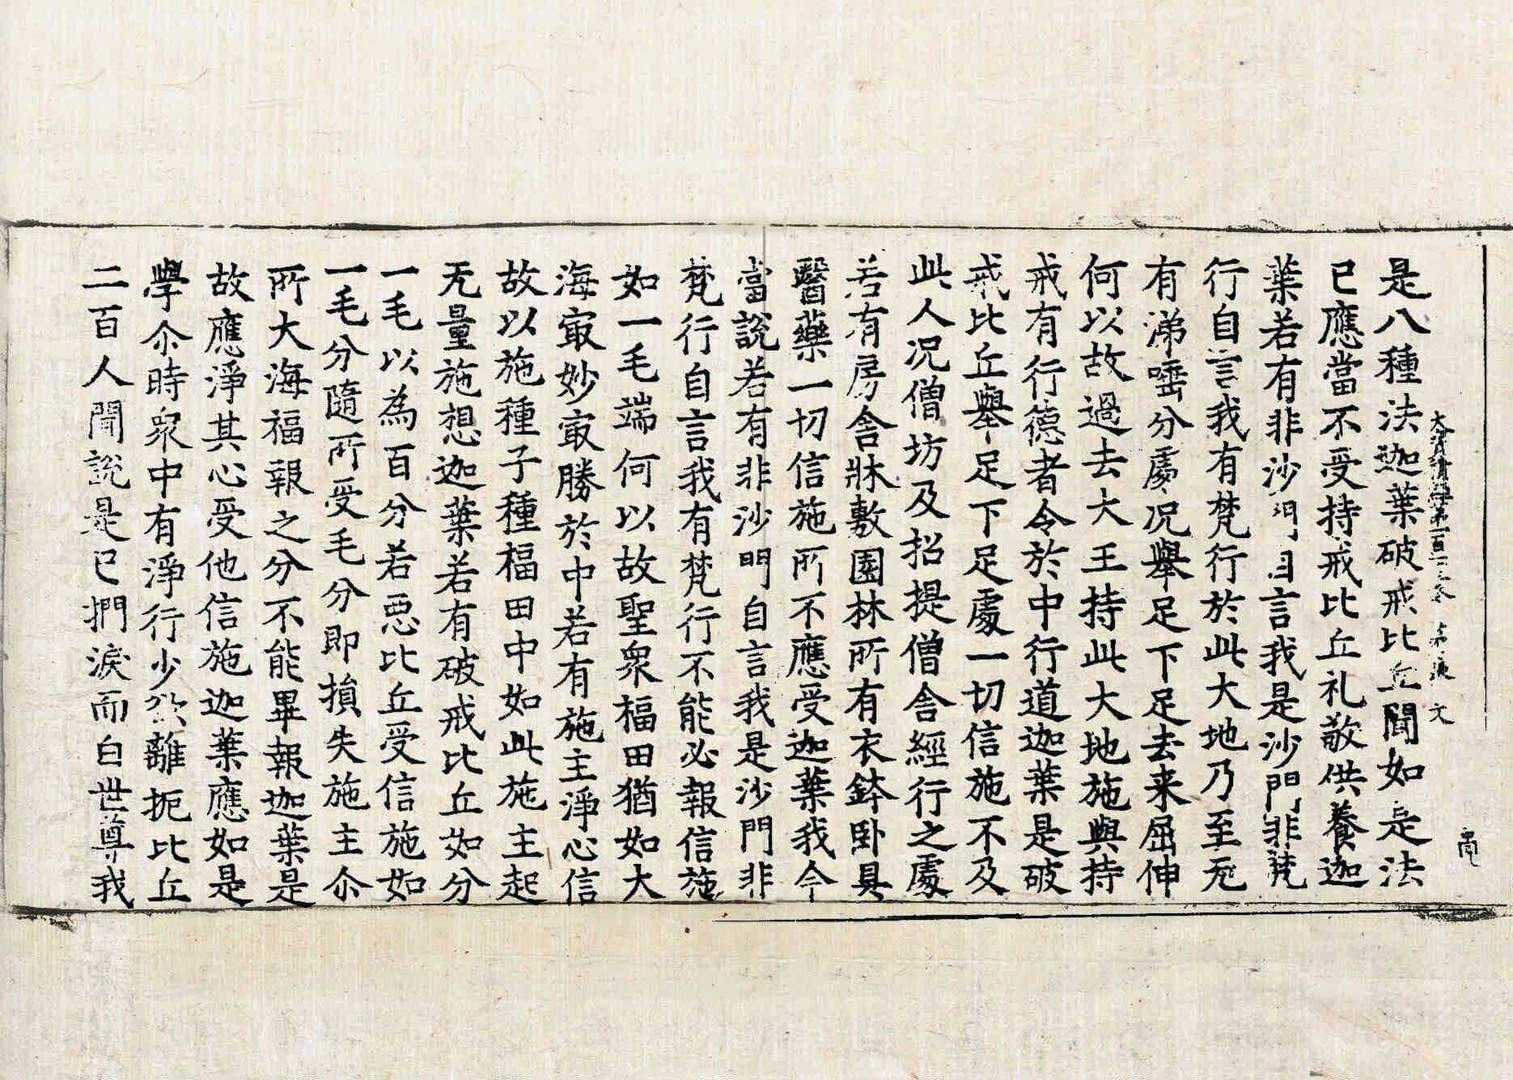 大寶積經第一百一十三卷 第五張 文
是八種法迦葉破戒比丘聞如是法
已應當不受持戒比丘礼敬供養迦
葉若有非沙門自言我是沙門非梵
行自言我有梵行於此大地乃至无
有涕唾分處况舉足下足去来屈伸
何以故過去大王持此大地施與持
戒有行德者令於中行道迦葉是破
戒比丘舉足下足處一切信施不及
此人况僧坊及招提僧舍經行之處
若有房舍牀敷園林所有衣鉢卧具
醫藥一切信施所不應受迦葉我今
當說若有非沙門自言我是沙門非
梵行自言我有梵行不能必報信施
如一毛端何以故聖衆福田猶如大
海㝡妙㝡勝於中若有施主淨心信
故以施種子種福田中如此施主起
无量施想迦葉若有破戒比丘如分
一毛以為百分若惡比丘受信施如
一毛分隨所受毛分即損失施主尒
所大海福報之分不能畢報迦葉是
故應淨其心受他信施迦葉應如是
學尒時衆中有淨行少欲離扼比丘
二百人聞說是已捫淚而白世尊我